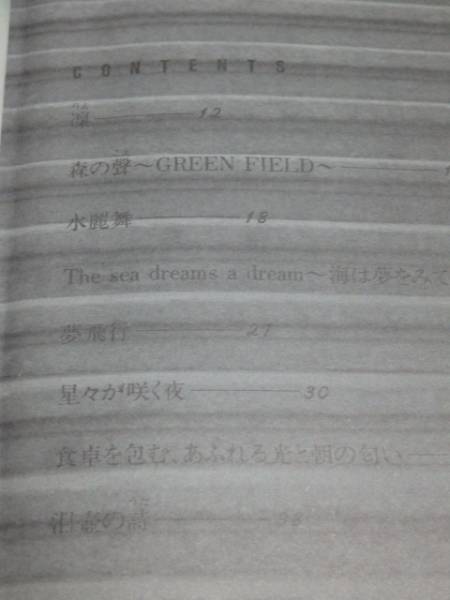 CONTENTS
凛 12
森の聲～GREEN FIELD～
水麗舞 18
The sea dreams a dream～海は夢をみて
夢飛行 27
星々が咲く夜 30
食卓を包む、あふれる光と朝の匂い
泪壺の詩